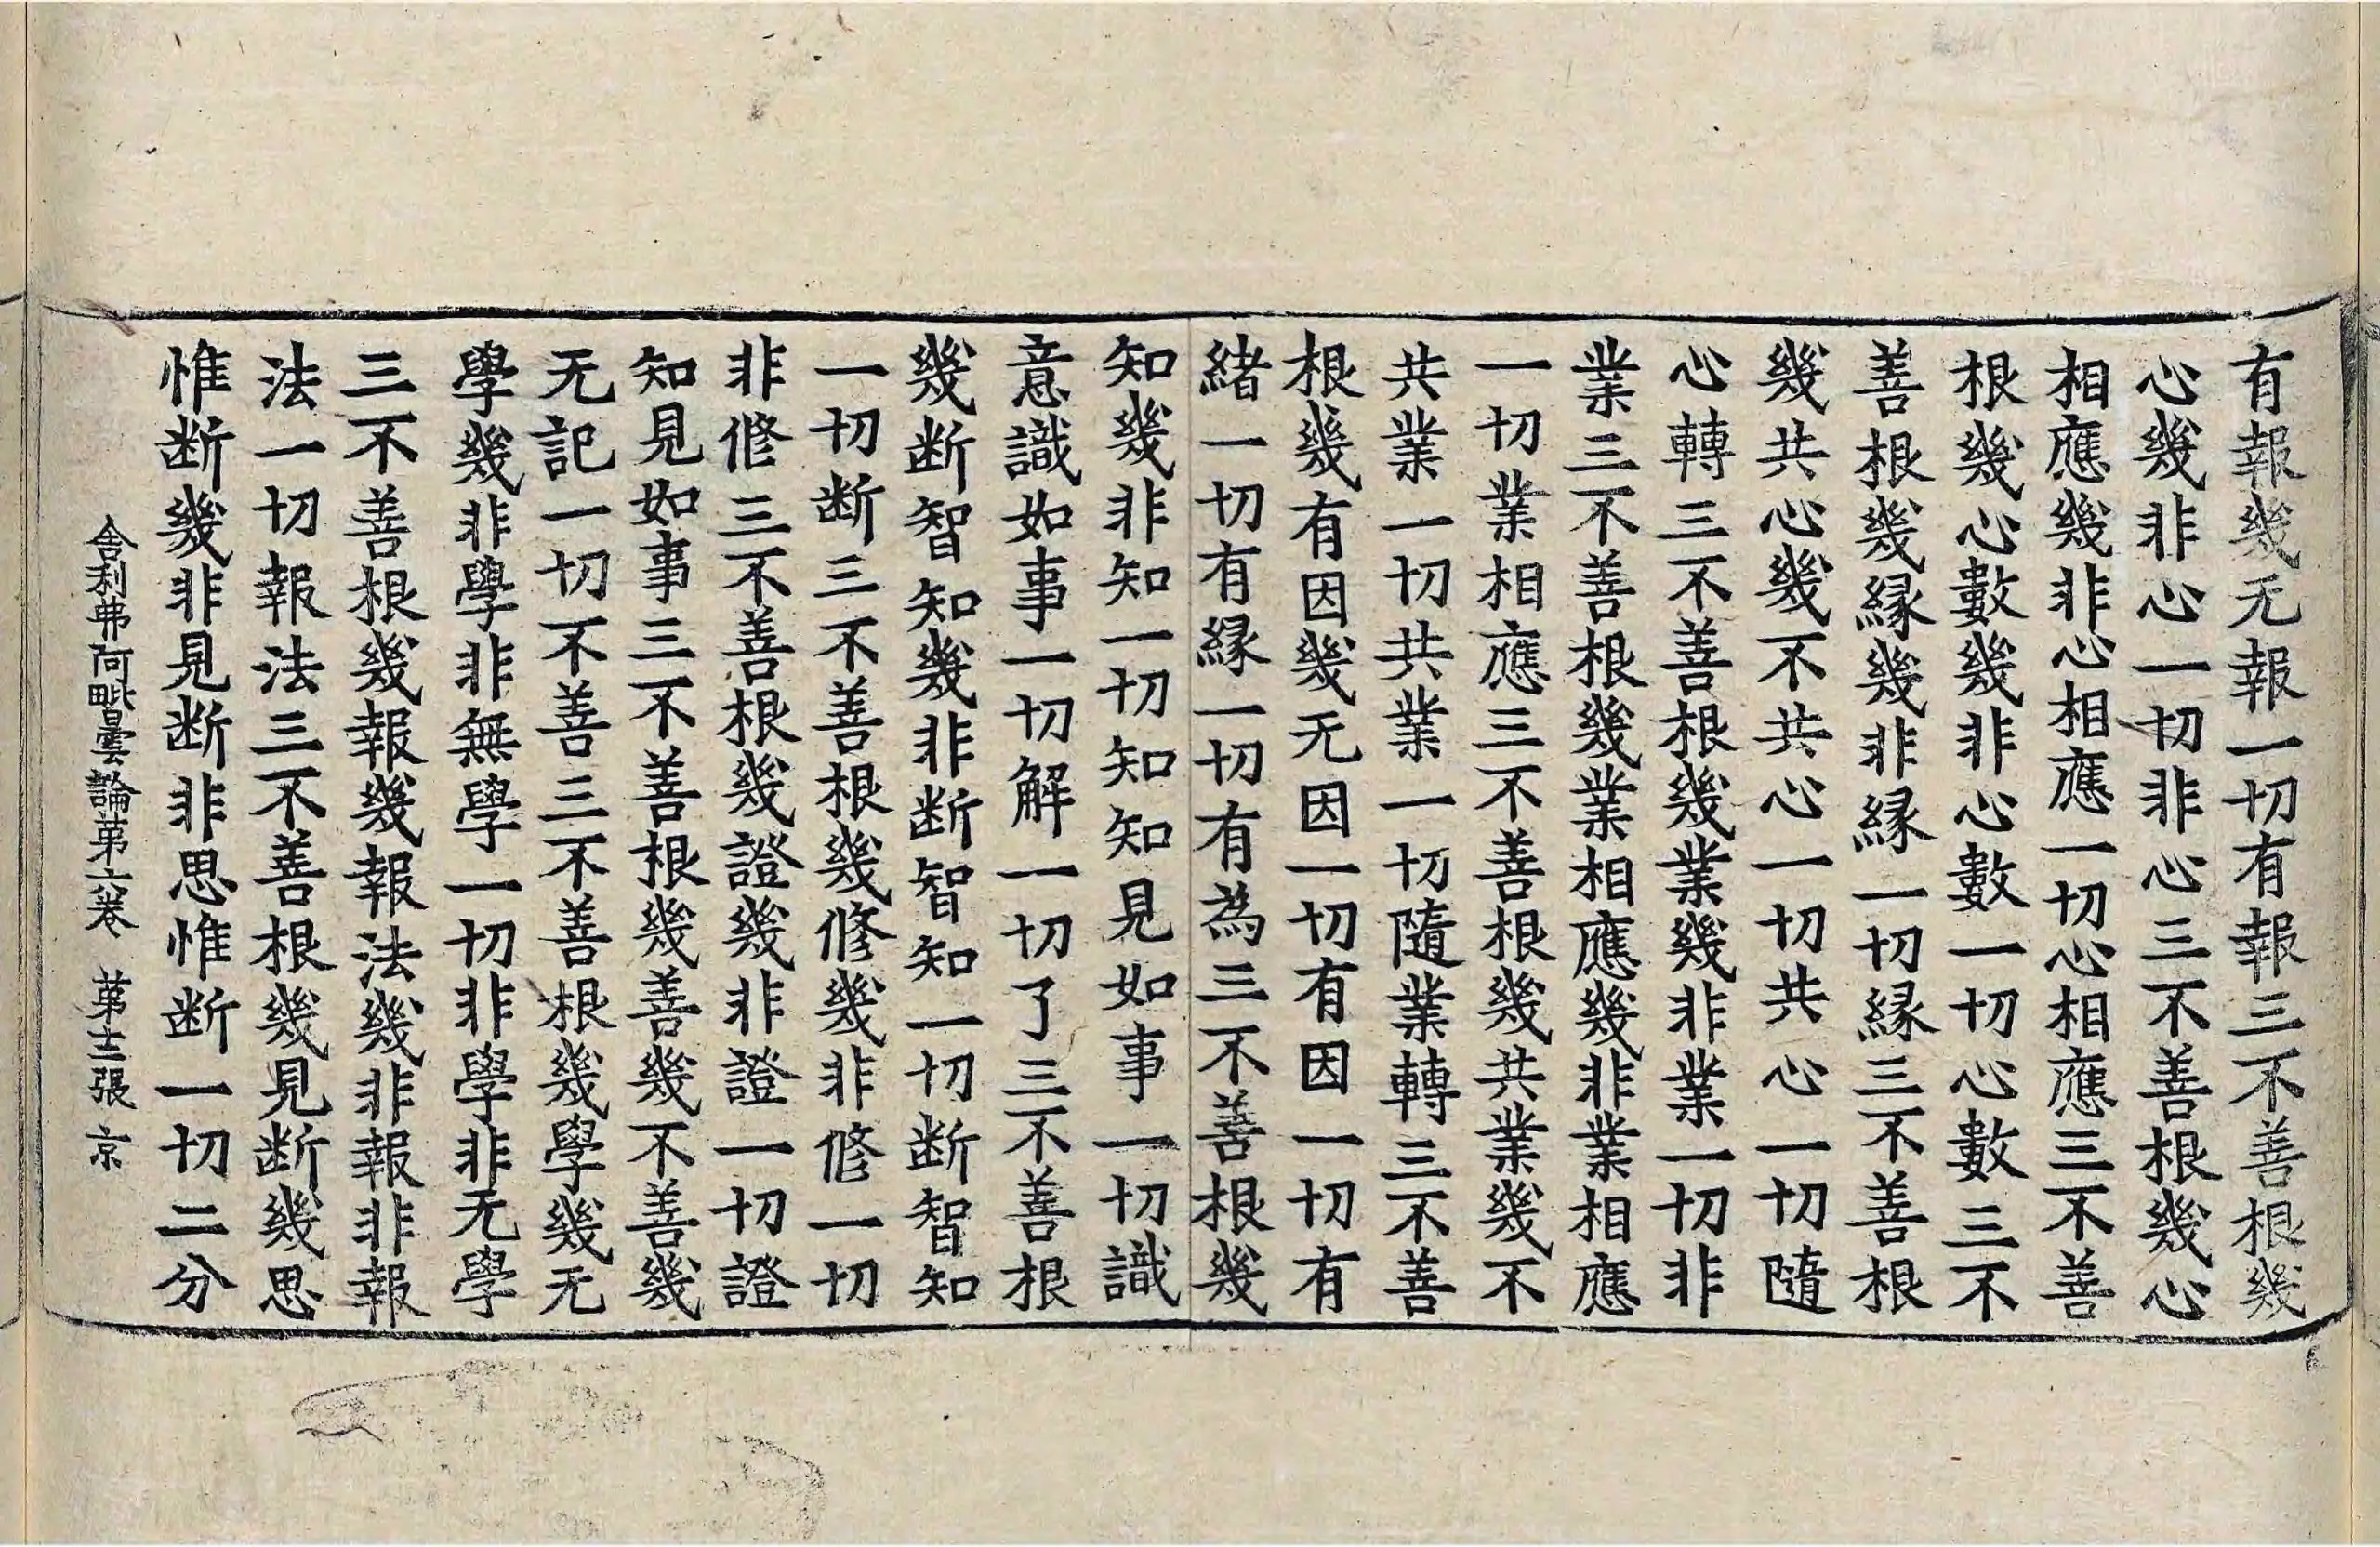 有報幾无報一切有報三不善根幾
心幾非心一切非心三不善根幾心
相應幾非心相應一切心相應三不善
根幾心數幾非心數一切心數三不
善根幾緣幾非緣一切緣三不善根
幾共心幾不共心一切共心一切隨
心轉三不善根幾業幾非業一切非
業三不善根幾業相應幾非業相應
一切業相應三不善根幾共業幾不
共業一切共業一切隨業轉三不善
根幾有因幾无因一切有因一切有
緒一切有緣一切有為三不善根幾
知幾非知一切知知見如事一切識
意識如事一切解一切了三不善根
幾断智知幾非断智知一切断智知
一切断三不善根幾修幾非修一切
非修三不善根幾證幾非證一切證
知見如事三不善根幾善幾不善幾
无記一切不善三不善根幾學幾无
學幾非學非無學一切非學非无學
三不善根幾報幾報法幾非報非報
法一切報法三不善根幾見断幾思
惟断幾非見断非思惟断一切二分
舍利弗阿毗曇論第六卷 第十二張 京